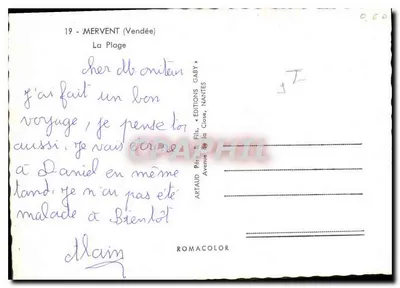 19 - MERVENT (Vendée)
La Plage
cher Moniteur
j'ai fait un bon
voyage, je pense toi
aussi, je vais écrire
à Daniel en même
tand, je n'ai pas été
malade à Bientôt
Alain
ARTAUD Père et Fils, "EDITIONS GABY"
Avenue de la Close, NANTES
ROMACOLOR